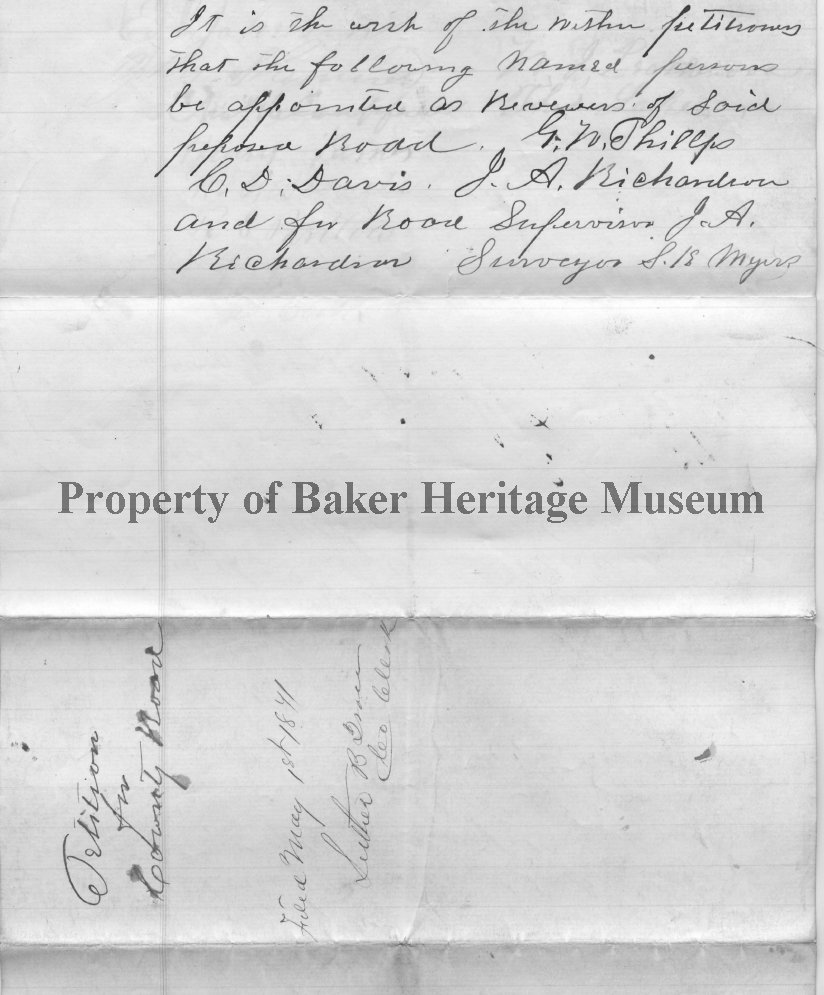 It is the wish of the within petitioners
that the following named persons
be appointed as Revewers of said
proposed Roadd. G. W. Phillps
C. D. Davis. J. A. Richardson
and for Road Supervisor J. A.
Richardson Surveyor S. B Myers
Property of Baker Heritage Museum
Petition
for
County Road
Filed May 1st 1871
Luther B Ison
Co Clerk